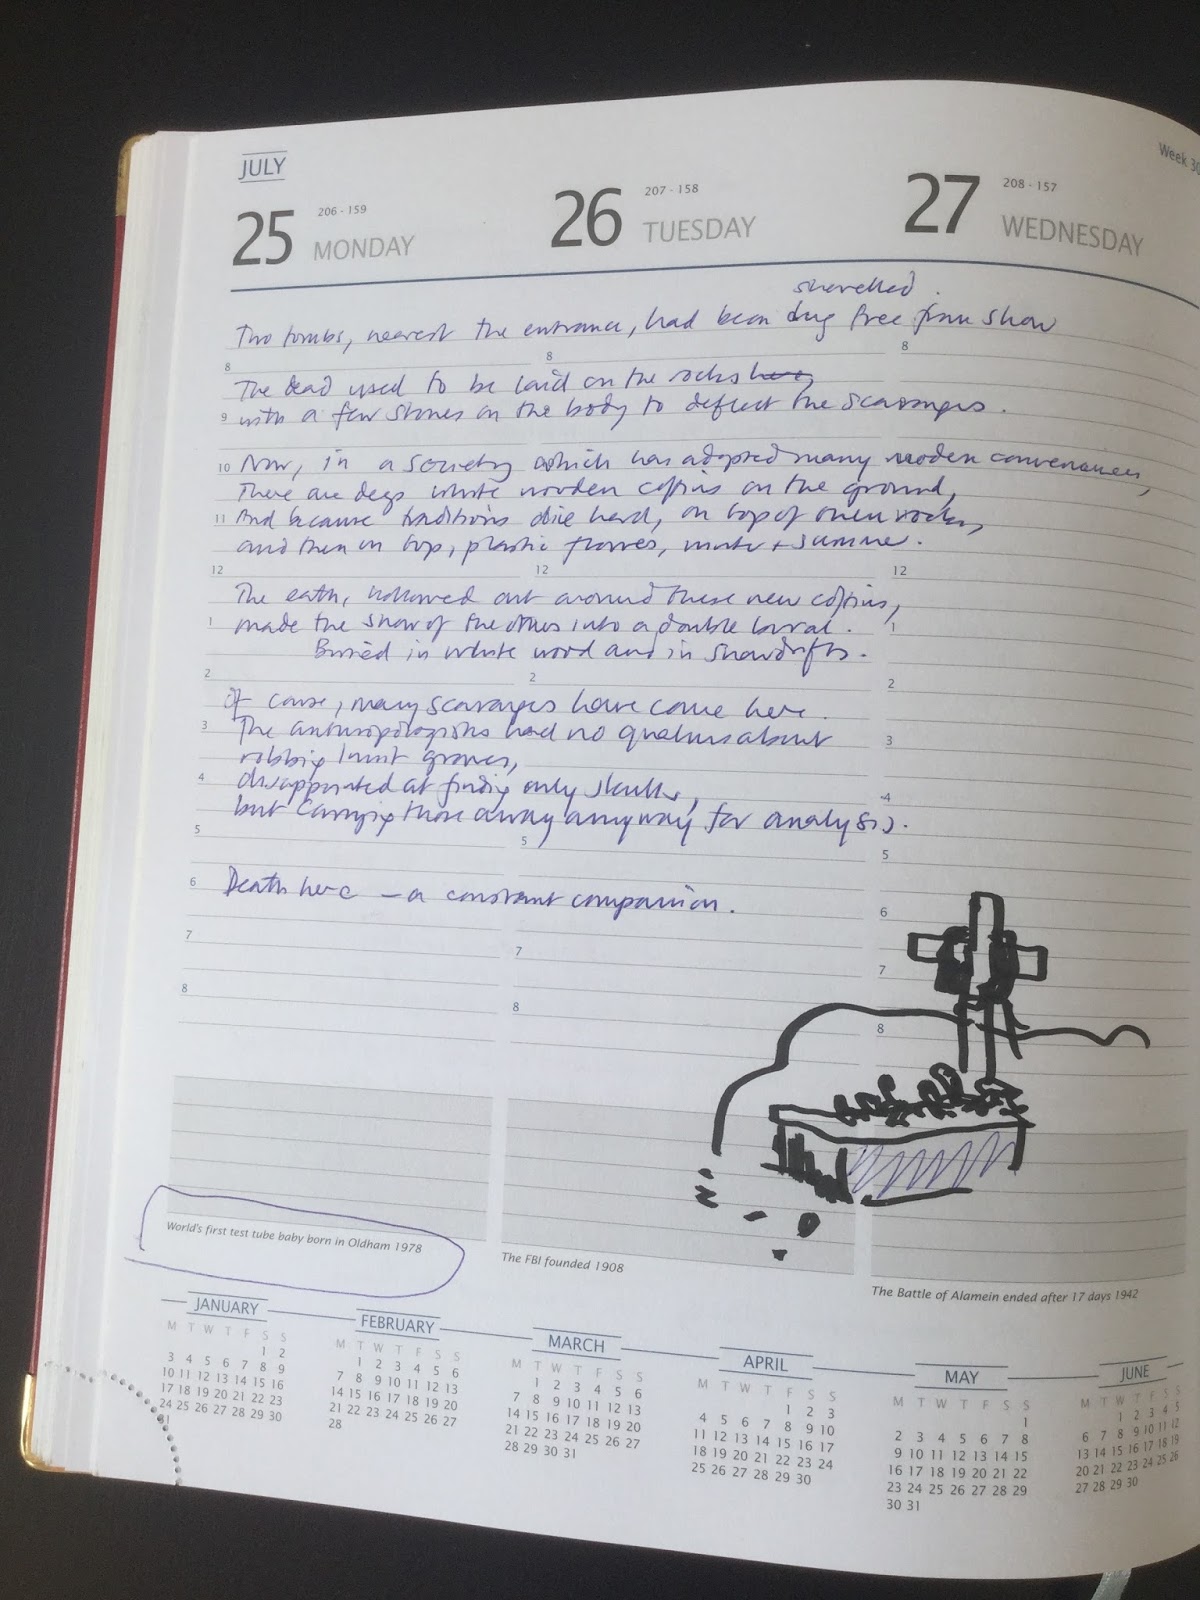 JULY
Week 30
25 206 - 159 MONDAY
26 207 - 158 TUESDAY
27 208 - 157 WEDNESDAY
shovelled.
Two tombs, nearest the entrance, had been dug free from snow
8 8 8
The dead used to be laid on the rocks here,
9 with a few stones on the body to deflect the scavengers.
10 Now, in a society which has adopted many modern conveniences,
There are deep white wooden coffins on the ground,
11 And because traditions die hard, on top of them rocks,
and then on top, plastic flowers, winter + summer.
12 12 12
The earth, hollowed out around these new coffins,
1 made the snow of the into a double burial. 1
Buried in white wood and in snowdrifts.
2 2 2
Of course, many scavengers have come here.
3 The anthropologists had no qualms about 3
robbing Inuit graves,
4 disappointed at finding only skulls, 4
but carrying those away anyway for analysis.
5 5 5
6 Death here – a constant companion. 6
7 7 7
8 8 8
World's first test tube baby born in Oldham 1978
The FBI founded 1908
The Battle of Alamein ended after 17 days 1942
JANUARY
M T W T F S S
1 2
3 4 5 6 7 8 9
10 11 12 13 14 15 16
17 18 19 20 21 22 23
24 25 26 27 28 29 30
31
FEBRUARY
M T W T F S S
1 2 3 4 5 6
7 8 9 10 11 12 13
14 15 16 17 18 19 20
21 22 23 24 25 26 27
28
MARCH
M T W T F S S
1 2 3 4 5 6
7 8 9 10 11 12 13
14 15 16 17 18 19 20
21 22 23 24 25 26 27
28 29 30 31
APRIL
M T W T F S S
1 2 3
4 5 6 7 8 9 10
11 12 13 14 15 16 17
18 19 20 21 22 23 24
25 26 27 28 29 30
MAY
M T W T F S S
1
2 3 4 5 6 7 8
9 10 11 12 13 14 15
16 17 18 19 20 21 22
23 24 25 26 27 28 29
30 31
JUNE
M T W T F S S
1 2 3 4 5
6 7 8 9 10 11 12
13 14 15 16 17 18 19
20 21 22 23 24 25 26
27 28 29 30